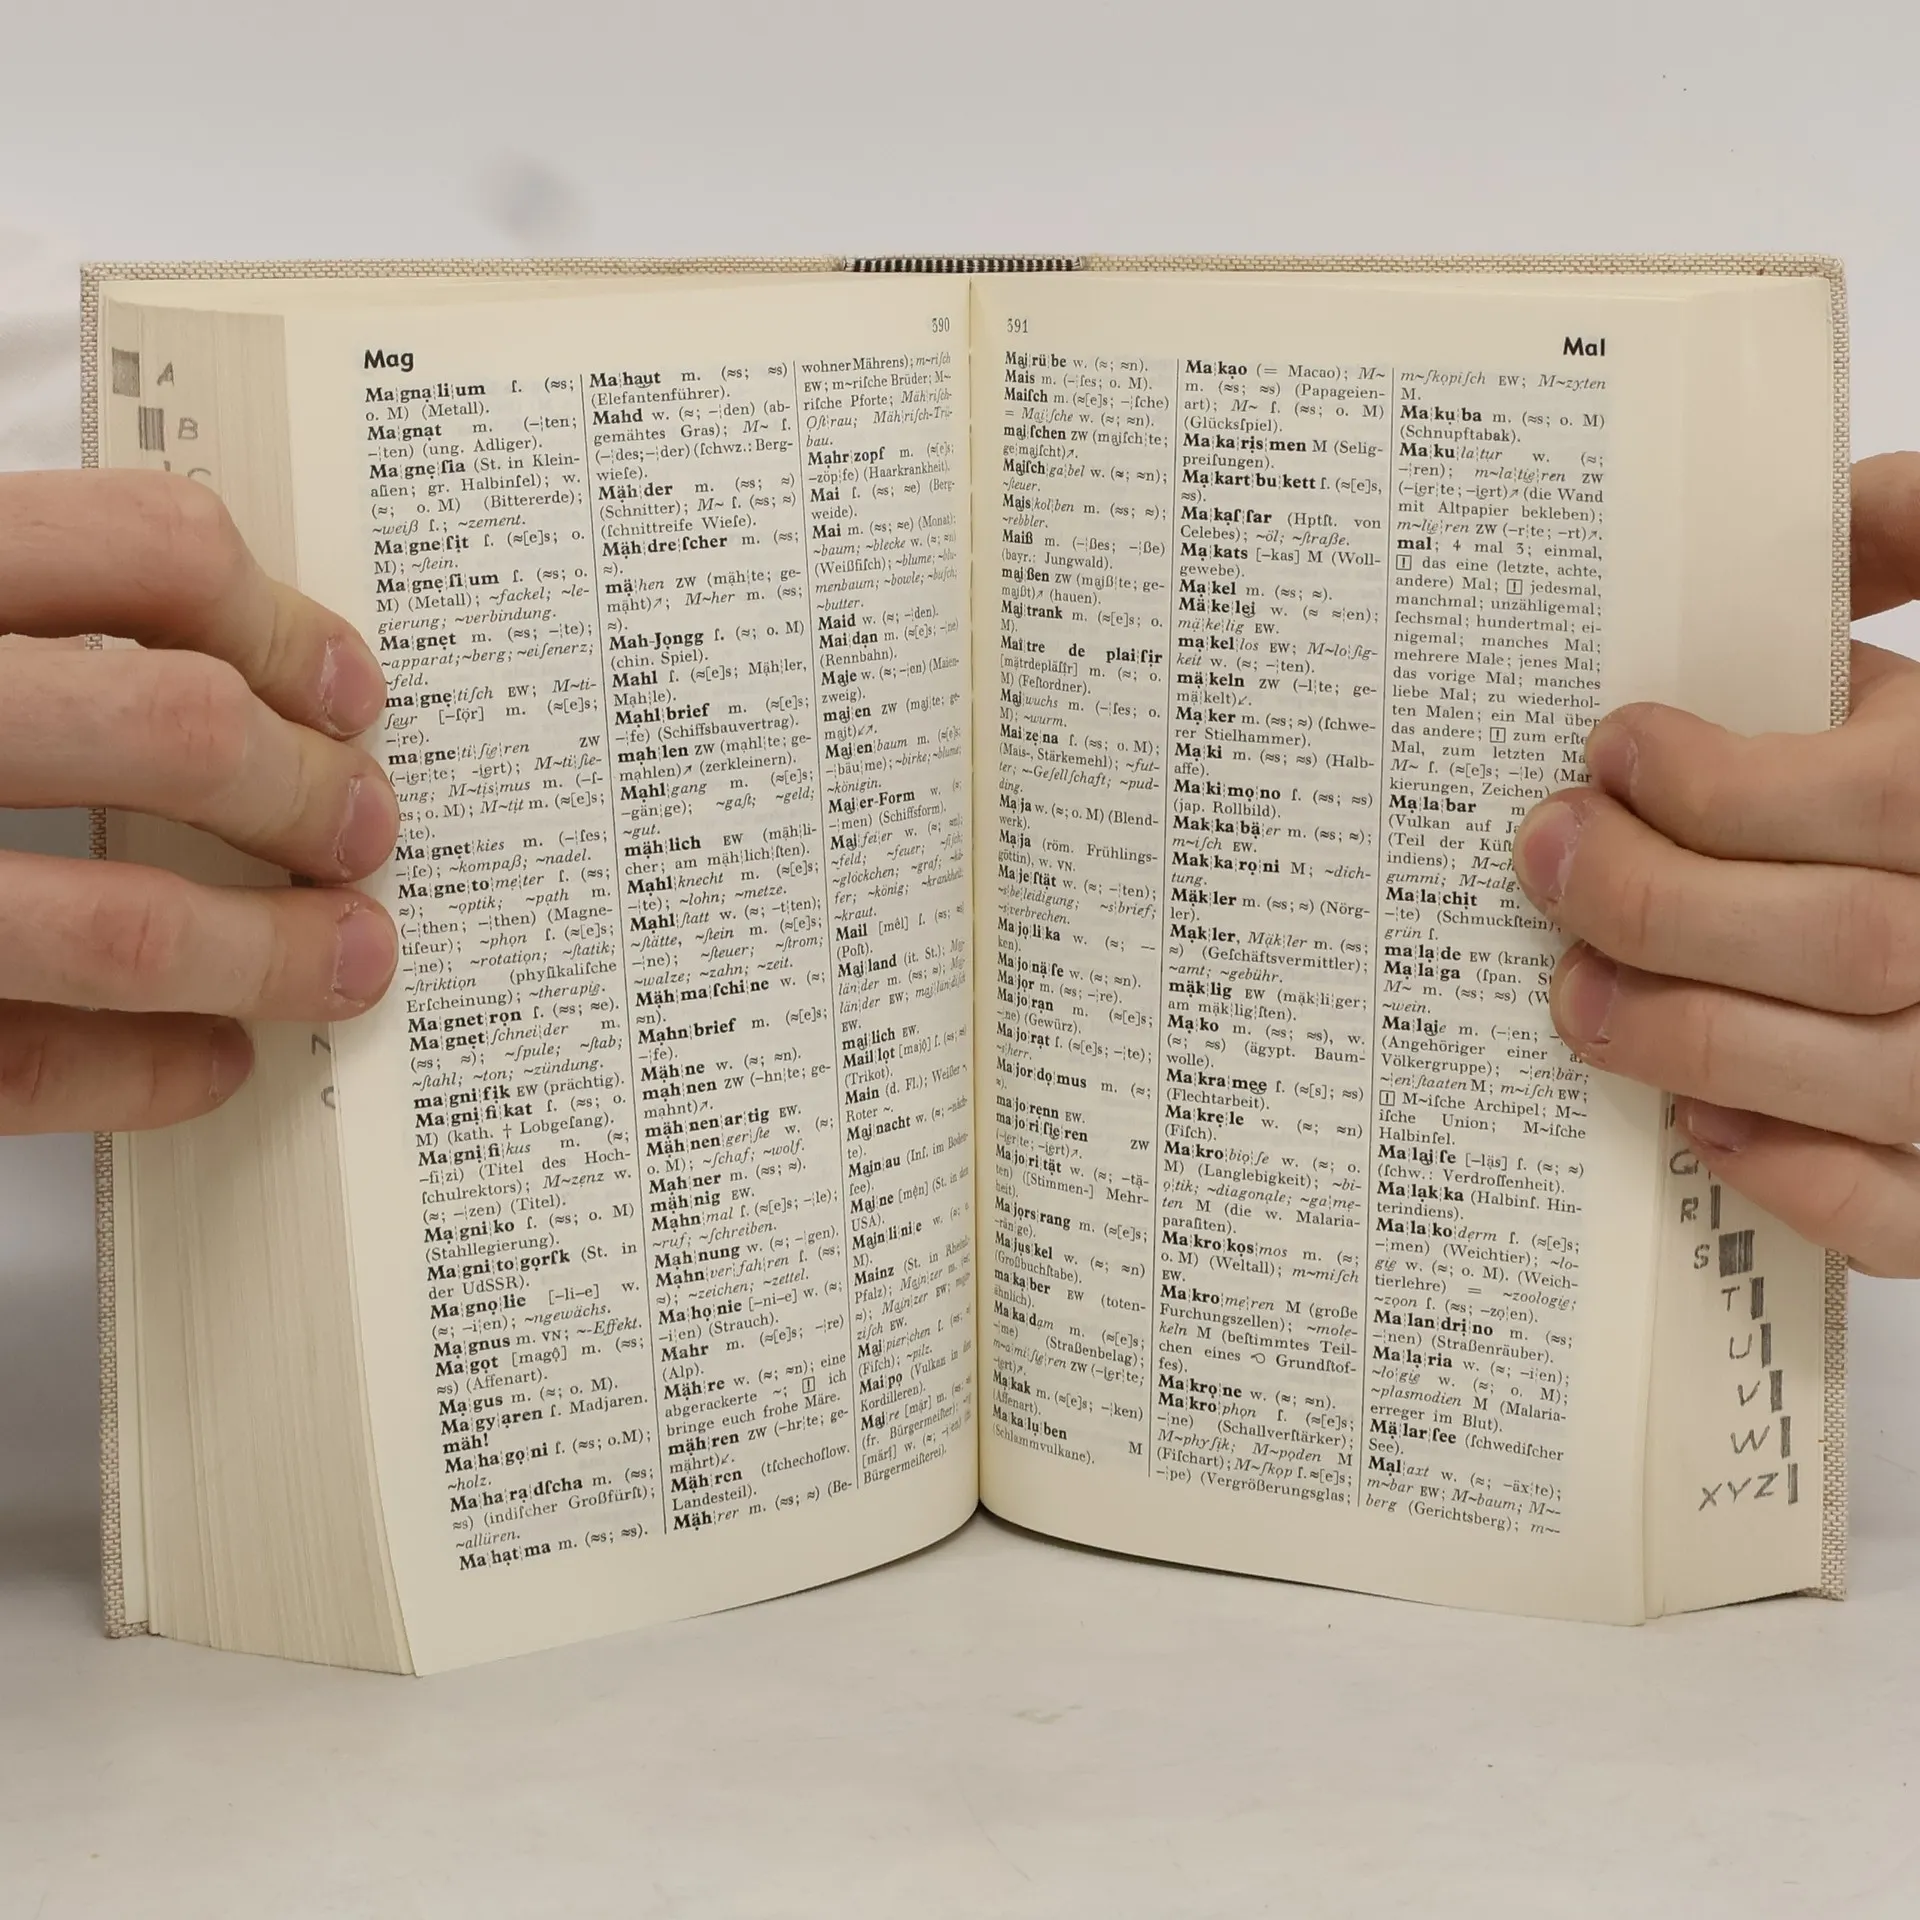 A
B
390
Mag
Ma¦gna¦li¦um ſ. (≈s;
o. M) (Metall).
Ma¦gnat m. (–¦ten;
–¦ten) (ung. Adliger).
Ma¦gne¦ſia (St. in Klein-
aſien; gr. Halbinſel); w.
(≈; o. M) (Bittererde);
~weiß ſ.; ~zement.
Ma¦gne¦ſit ſ. (≈[e]s; o.
M); ~ſtein.
Ma¦gne¦ſi¦um ſ. (≈s; o.
M) (Metall); ~fackel; ~le-
gierung; ~verbindung.
Ma¦gnet m. (≈s; –¦te);
~apparat; ~berg; ~eiſenerz;
~feld.
ma¦gne¦tiſch EW; M~ti-
ſeur [–ſör] m. (≈[e]s;
–¦re).
ma¦gne¦ti¦ſie¦ren ZW
(–¦ier¦te; –¦iert); M~ti¦ſie-
rung; M~tis¦mus m. (–ſ-
es; o. M); M~tit m. (≈[e]s;
–¦te).
Ma¦gnet¦kies m. (–¦ſes;
–¦ſe); ~kompaß; ~nadel.
Ma¦gne¦to¦me¦ter ſ. (≈s;
≈); ~optik; ~path m.
(–¦then; –¦then) (Magne-
tiſeur); ~phon ſ. (≈[e]s;
–¦ne); ~rotation; ~ſtatik;
~ſtriktion (phyſikaliſche
Erſcheinung); ~therapie.
Ma¦gnet¦ron ſ. (≈s; ≈e).
Ma¦gnet¦ſchnei¦der m.
(≈s; ≈); ~ſpule; ~ſtab;
~ſtahl; ~ton; ~zündung.
ma¦gni¦fik EW (prächtig).
Ma¦gni¦fi¦kat ſ. (≈s; o.
M) (kath. † Lobgeſang).
Ma¦gni¦fi¦kus m. (≈;
–fi¦zi) (Titel des Hoch-
ſchulrektors); M~zenz w.
(≈; –¦zen) (Titel).
Ma¦gni¦ko ſ. (≈s; o. M)
(Stahllegierung).
Ma¦gni¦to¦gorſk (St. in
der UdSSR).
Ma¦gno¦lie [–li–e] w.
(≈; –i¦en); ~ngewächs.
Ma¦gnus m. VN; ~-Effekt.
Ma¦got [magô] m. (≈s;
≈s) (Affenart).
Ma¦gus m. (≈; o. M).
Ma¦gy¦aren ſ. Madjaren.
mäh!
Ma¦ha¦go¦ni ſ. (≈s; o.M);
~holz.
Ma¦ha¦ra¦dſcha m. (≈s;
≈s) (indiſcher Großfürſt);
~allüren.
Ma¦hat¦ma m. (≈s; ≈s).
Ma¦haut m. (≈s; ≈s)
(Elefantenführer).
Mahd w. (≈; –¦den) (ab-
gemähtes Gras); M~ ſ.
(–¦des;–¦der) (ſchwz.: Berg-
wieſe).
Mäh¦der m. (≈s; ≈)
(Schnitter); M~ ſ. (≈s; ≈)
(ſchnittreife Wieſe).
Mäh¦dre¦ſcher m. (≈s;
≈).
mä¦hen ZW (mäh¦te; ge-
mäht)↗; M~her m. (≈s;
≈).
Mah-Jongg ſ. (≈; o. M)
(chin. Spiel).
Mahl ſ. (≈[e]s; Mäh¦ler,
Mah¦le).
Mahl¦brief m. (≈[e]s;
–¦fe) (Schiffsbauvertrag).
mah¦len ZW (mahl¦te; ge-
mahlen)↗ (zerkleinern).
Mahl¦gang m. (≈[e]s;
–gän¦ge); ~gaſt; ~geld;
~gut.
mäh¦lich EW (mäh¦li-
cher; am mäh¦lich¦ſten).
Mahl¦knecht m. (≈[e]s;
–¦te); ~lohn; ~metze.
Mahl¦ſtatt w. (≈; –t¦ten);
~ſtätte, ~ſtein m. (≈[e]s;
–¦ne); ~ſteuer; ~ſtrom;
~walze; ~zahn; ~zeit.
Mäh¦ma¦ſchi¦ne w. (≈;
≈n).
Mahn¦brief m. (≈[e]s;
–¦fe).
Mäh¦ne w. (≈; ≈n).
mah¦nen ZW (–hn¦te; ge-
mahnt)↗.
mäh¦nen¦ar¦tig EW.
Mäh¦nen¦ger¦ſte w. (≈;
o. M); ~ſchaf; ~wolf.
Mah¦ner m. (≈s; ≈).
mäh¦nig EW.
Mahn¦mal ſ. (≈[e]s; –¦le);
~ruf; ~ſchreiben.
Mah¦nung w. (≈; –¦gen).
Mahn¦ver¦fah¦ren ſ. (≈s;
≈); ~zeichen; ~zettel.
Ma¦ho¦nie [–ni–e] w. (≈;
–i¦en) (Strauch).
Mahr m. (≈[e]s; –¦re)
(Alp).
Mäh¦re w. (≈; ≈n); eine
abgerackerte ~; [!] ich
bringe euch frohe Märe.
mäh¦ren ZW (–hr¦te; ge-
mährt)↙.
Mäh¦ren (tſchechoſlow.
Landesteil).
Mäh¦rer m. (≈s; ≈) (Be-
wohner Mährens); m~riſch
EW; m~riſche Brüder; M~
riſche Pforte; Mäh¦riſch-
Oſt¦rau; Mäh¦riſch-Trü-
bau.
Mahr¦zopf m. (≈[e]s;
–zöp¦fe) (Haarkrankheit).
Mai ſ. (≈s; ≈e) (Berg-
weide).
Mai m. (≈s; ≈e) (Monat);
~baum; ~blecke w. (≈; ≈n)
(Weißfiſch); ~blume; ~blu-
menbaum; ~bowle; ~buſch;
~butter.
Maid w. (≈; –¦den).
Mai¦dan m. (≈[e]s; –¦ne)
(Rennbahn).
Maie w. (≈; –¦en) (Maien-
zweig).
mai¦en ZW (mai¦te; ge-
mait)↙↗.
Mai¦en¦baum m. (≈[e]s;
–¦bäu¦me); ~birke; ~blume;
~königin.
Mai¦er-Form w. (≈;
–¦men) (Schiffsform).
Mai¦fei¦er w. (≈; ≈n);
~feld; ~feuer; ~fiſch;
~glöckchen; ~graf; ~kä-
fer; ~könig; ~krankheit;
~kraut.
Mail [mêl] ſ. (≈s; ≈)
(Poſt).
Mai¦land (it. St.); Mai-
län¦der m. (≈s; ≈); Mai-
län¦der EW; mai¦län¦diſch
EW.
mai¦lich EW.
Mail¦lot [majô] ſ. (≈s; ≈s)
(Trikot).
Main (d. Fl.); Weißer ~,
Roter ~.
Mai¦nacht w. (≈; –näch-
te).
Main¦au (Inſ. im Boden-
ſee).
Mai¦ne [mên] (St. in den
USA).
Main¦li¦nie w. (≈; o.
M).
Mainz (St. in Rheinl.-
Pfalz); Main¦zer m. (≈s;
≈); Main¦zer EW; main-
ziſch EW.
Mai¦pier¦chen ſ. (≈s; ≈)
(Fiſch); ~pilz.
Mai¦po (Vulkan in den
Kordilleren).
Mai¦re [mär] m. (≈s; ≈s)
(fr. Bürgermeiſter);
[märſ] w. (≈; –i¦en)
Bürgermeiſterei).
391
Mal
Mai¦rü¦be w. (≈; ≈n).
Mais m. (–¦ſes; o. M).
Maiſch m. (≈[e]s; –¦ſche)
= Mai¦ſche w. (≈; ≈n).
mai¦ſchen ZW (maiſch¦te;
ge¦maiſcht)↗.
Maiſch¦ga¦bel w. (≈; ≈n);
~ſteuer.
Mais¦kol¦ben m. (≈s; ≈);
~rebbler.
Maiß m. (–¦ßes; –¦ße)
(bayr.: Jungwald).
mai¦ßen ZW (maiß¦te; ge-
maißt)↗ (hauen).
Mai¦trank m. (≈[e]s; o.
M).
Maî¦tre de plai¦ſir
[mätrdepläſîr] m. (≈; o.
M) (Feſtordner).
Mai¦wuchs m. (–¦ſes; o.
M); ~wurm.
Mai¦ze¦na ſ. (≈s; o. M);
(Mais-, Stärkemehl); ~fut-
ter; ~-Geſellſchaft; ~pud-
ding.
Ma¦ja w. (≈; o. M) (Blend-
werk).
Ma¦ja (röm. Frühlings-
göttin), w. VN.
Ma¦je¦ſtät w. (≈; –¦ten);
~s¦be¦leidigung; ~s¦brief;
~s¦verbrechen.
Ma¦jo¦li¦ka w. (≈; –-
ken).
Ma¦jo¦nä¦ſe w. (≈; ≈n).
Ma¦jor m. (≈s; –¦re).
Ma¦jo¦ran m. (≈[e]s;
–¦ne) (Gewürz).
Ma¦jo¦rat ſ. (≈[e]s; –¦te);
~s¦herr.
Ma¦jor¦do¦mus m. (≈;
≈).
ma¦jo¦renn EW.
ma¦jo¦ri¦ſie¦ren ZW
(–¦ier¦te; –¦iert)↗.
Ma¦jo¦ri¦tät w. (≈; –tä-
ten) ([Stimmen-] Mehr-
heit).
Ma¦jors¦rang m. (≈[e]s;
–rän¦ge).
Ma¦jus¦kel w. (≈; ≈n)
(Großbuchſtabe).
ma¦ka¦ber EW (toten-
ähnlich).
Ma¦ka¦dam m. (≈[e]s;
–¦me) (Straßenbelag);
m~a¦mi¦ſie¦ren ZW (–¦ier¦te;
–¦iert)↗.
Ma¦kak m. (≈[e]s; –¦ken)
(Affenart).
Ma¦ka¦lu¦ben M
(Schlammvulkane).
Ma¦kao (= Macao); M~
m. (≈s; ≈s) (Papageien-
art); M~ ſ. (≈s; o. M)
(Glücksſpiel).
Ma¦ka¦ris¦men M (Selig-
preiſungen).
Ma¦kart¦bu¦kett ſ. (≈[e]s,
≈s).
Ma¦kaſ¦ſar (Hptſt. von
Celebes); ~öl; ~ſtraße.
Ma¦kats [–kas] M (Woll-
gewebe).
Ma¦kel m. (≈s; ≈).
Mä¦ke¦lei w. (≈ ≈¦en);
mä¦ke¦lig EW.
ma¦kel¦los EW; M~lo¦ſig-
keit w. (≈; –¦ten).
mä¦keln ZW (–l¦te; ge-
mä¦kelt)↙.
Ma¦ker m. (≈s; ≈) (ſchwe-
rer Stielhammer).
Ma¦ki m. (≈s; ≈s) (Halb-
affe).
Ma¦ki¦mo¦no ſ. (≈s; ≈s)
(jap. Rollbild).
Mak¦ka¦bä¦er m. (≈s; ≈);
m~iſch EW.
Mak¦ka¦ro¦ni M; ~dich-
tung.
Mäk¦ler m. (≈s; ≈) (Nörg-
ler).
Mak¦ler, Mäk¦ler m. (≈s;
≈) (Geſchäftsvermittler);
~amt; ~gebühr.
mäk¦lig EW (mäk¦li¦ger;
am mäk¦lig¦ſten).
Ma¦ko m. (≈s; ≈s), w.
(≈; ≈s) (ägypt. Baum-
wolle).
Ma¦kra¦mee ſ. (≈[s]; ≈s)
(Flechtarbeit).
Ma¦kre¦le w. (≈; ≈n)
(Fiſch).
Ma¦kro¦bio¦ſe w. (≈; o.
M) (Langlebigkeit); ~bi-
o¦tik; ~diagonale; ~ga¦me-
ten M (die w. Malaria-
paraſiten).
Ma¦kro¦kos¦mos m. (≈;
o. M) (Weltall); m~miſch
EW.
Ma¦kro¦me¦ren M (große
Furchungszellen); ~mole-
keln M (beſtimmtes Teil-
chen eines Grundſtof-
fes).
Ma¦kro¦ne w. (≈; ≈n).
Ma¦kro¦phon ſ. (≈[e]s;
–¦ne) (Schallverſtärker);
M~phy¦ſik; M~po¦den M
(Fiſchart); M~ſkop ſ. ≈[e]s;
–¦pe) (Vergrößerungsglas;
m~ſkopiſch EW; M~zyten
M.
Ma¦ku¦ba m. (≈s; o. M)
(Schnupftabak).
Ma¦ku¦la¦tur w. (≈;
–¦ren); m~la¦tie¦ren ZW
(–¦ier¦te; –¦iert)↗ (die Wand
mit Altpapier bekleben);
m~lie¦ren ZW (–r¦te; –rt)↗.
mal; 4 mal 3; einmal,
[!] das eine (letzte, achte,
andere) Mal; [!] jedesmal,
manchmal; unzähligemal;
ſechsmal; hundertmal; ei-
nigemal; manches Mal;
mehrere Male; jenes Mal;
das vorige Mal; manches
liebe Mal; zu wiederhol-
ten Malen; ein Mal über
das andere; [!] zum erſte
Mal, zum letzten Ma
M~ ſ. (≈[e]s; –¦le) (Mar
kierungen, Zeichen)
Ma¦la¦bar m
(Vulkan auf Ja
(Teil der Küſt
indiens); M~
gummi; M~talg.
Ma¦la¦chit m.
–¦te) (Schmuckſtein);
grün ſ.
ma¦la¦de EW (krank)
Ma¦la¦ga (ſpan. S
M~ m. (≈s; ≈s) (W
~wein.
Ma¦laie m. (–¦en;
(Angehöriger einer
Völkergruppe); ~¦en¦bär;
~¦en¦ſtaaten M; m~iſch EW;
[!] M~iſche Archipel; M~-
iſche Union; M~iſche
Halbinſel.
Ma¦lai¦ſe [–läs] ſ. (≈; ≈)
(ſchw.: Verdroſſenheit).
Ma¦lak¦ka (Halbinſ. Hin-
terindiens).
Ma¦la¦ko¦derm ſ. (≈[e]s;
–¦men) (Weichtier); ~lo-
gie w. (≈; o. M). (Weich-
tierlehre) = ~zoologie;
~zoon ſ. (≈s; –zo¦en).
Ma¦lan¦dri¦no m. (≈s;
–¦nen) (Straßenräuber).
Ma¦la¦ria w. (≈; –i¦en);
~lo¦gie w. (≈; o. M);
~plasmodien M (Malaria-
erreger im Blut).
Mä¦lar¦ſee (ſchwediſcher
See).
Mal¦axt w. (≈; –äx¦te);
m~bar EW; M~baum; M~-
berg (Gerichtsberg); m~-
R
S
T
U
V
W
XYZ